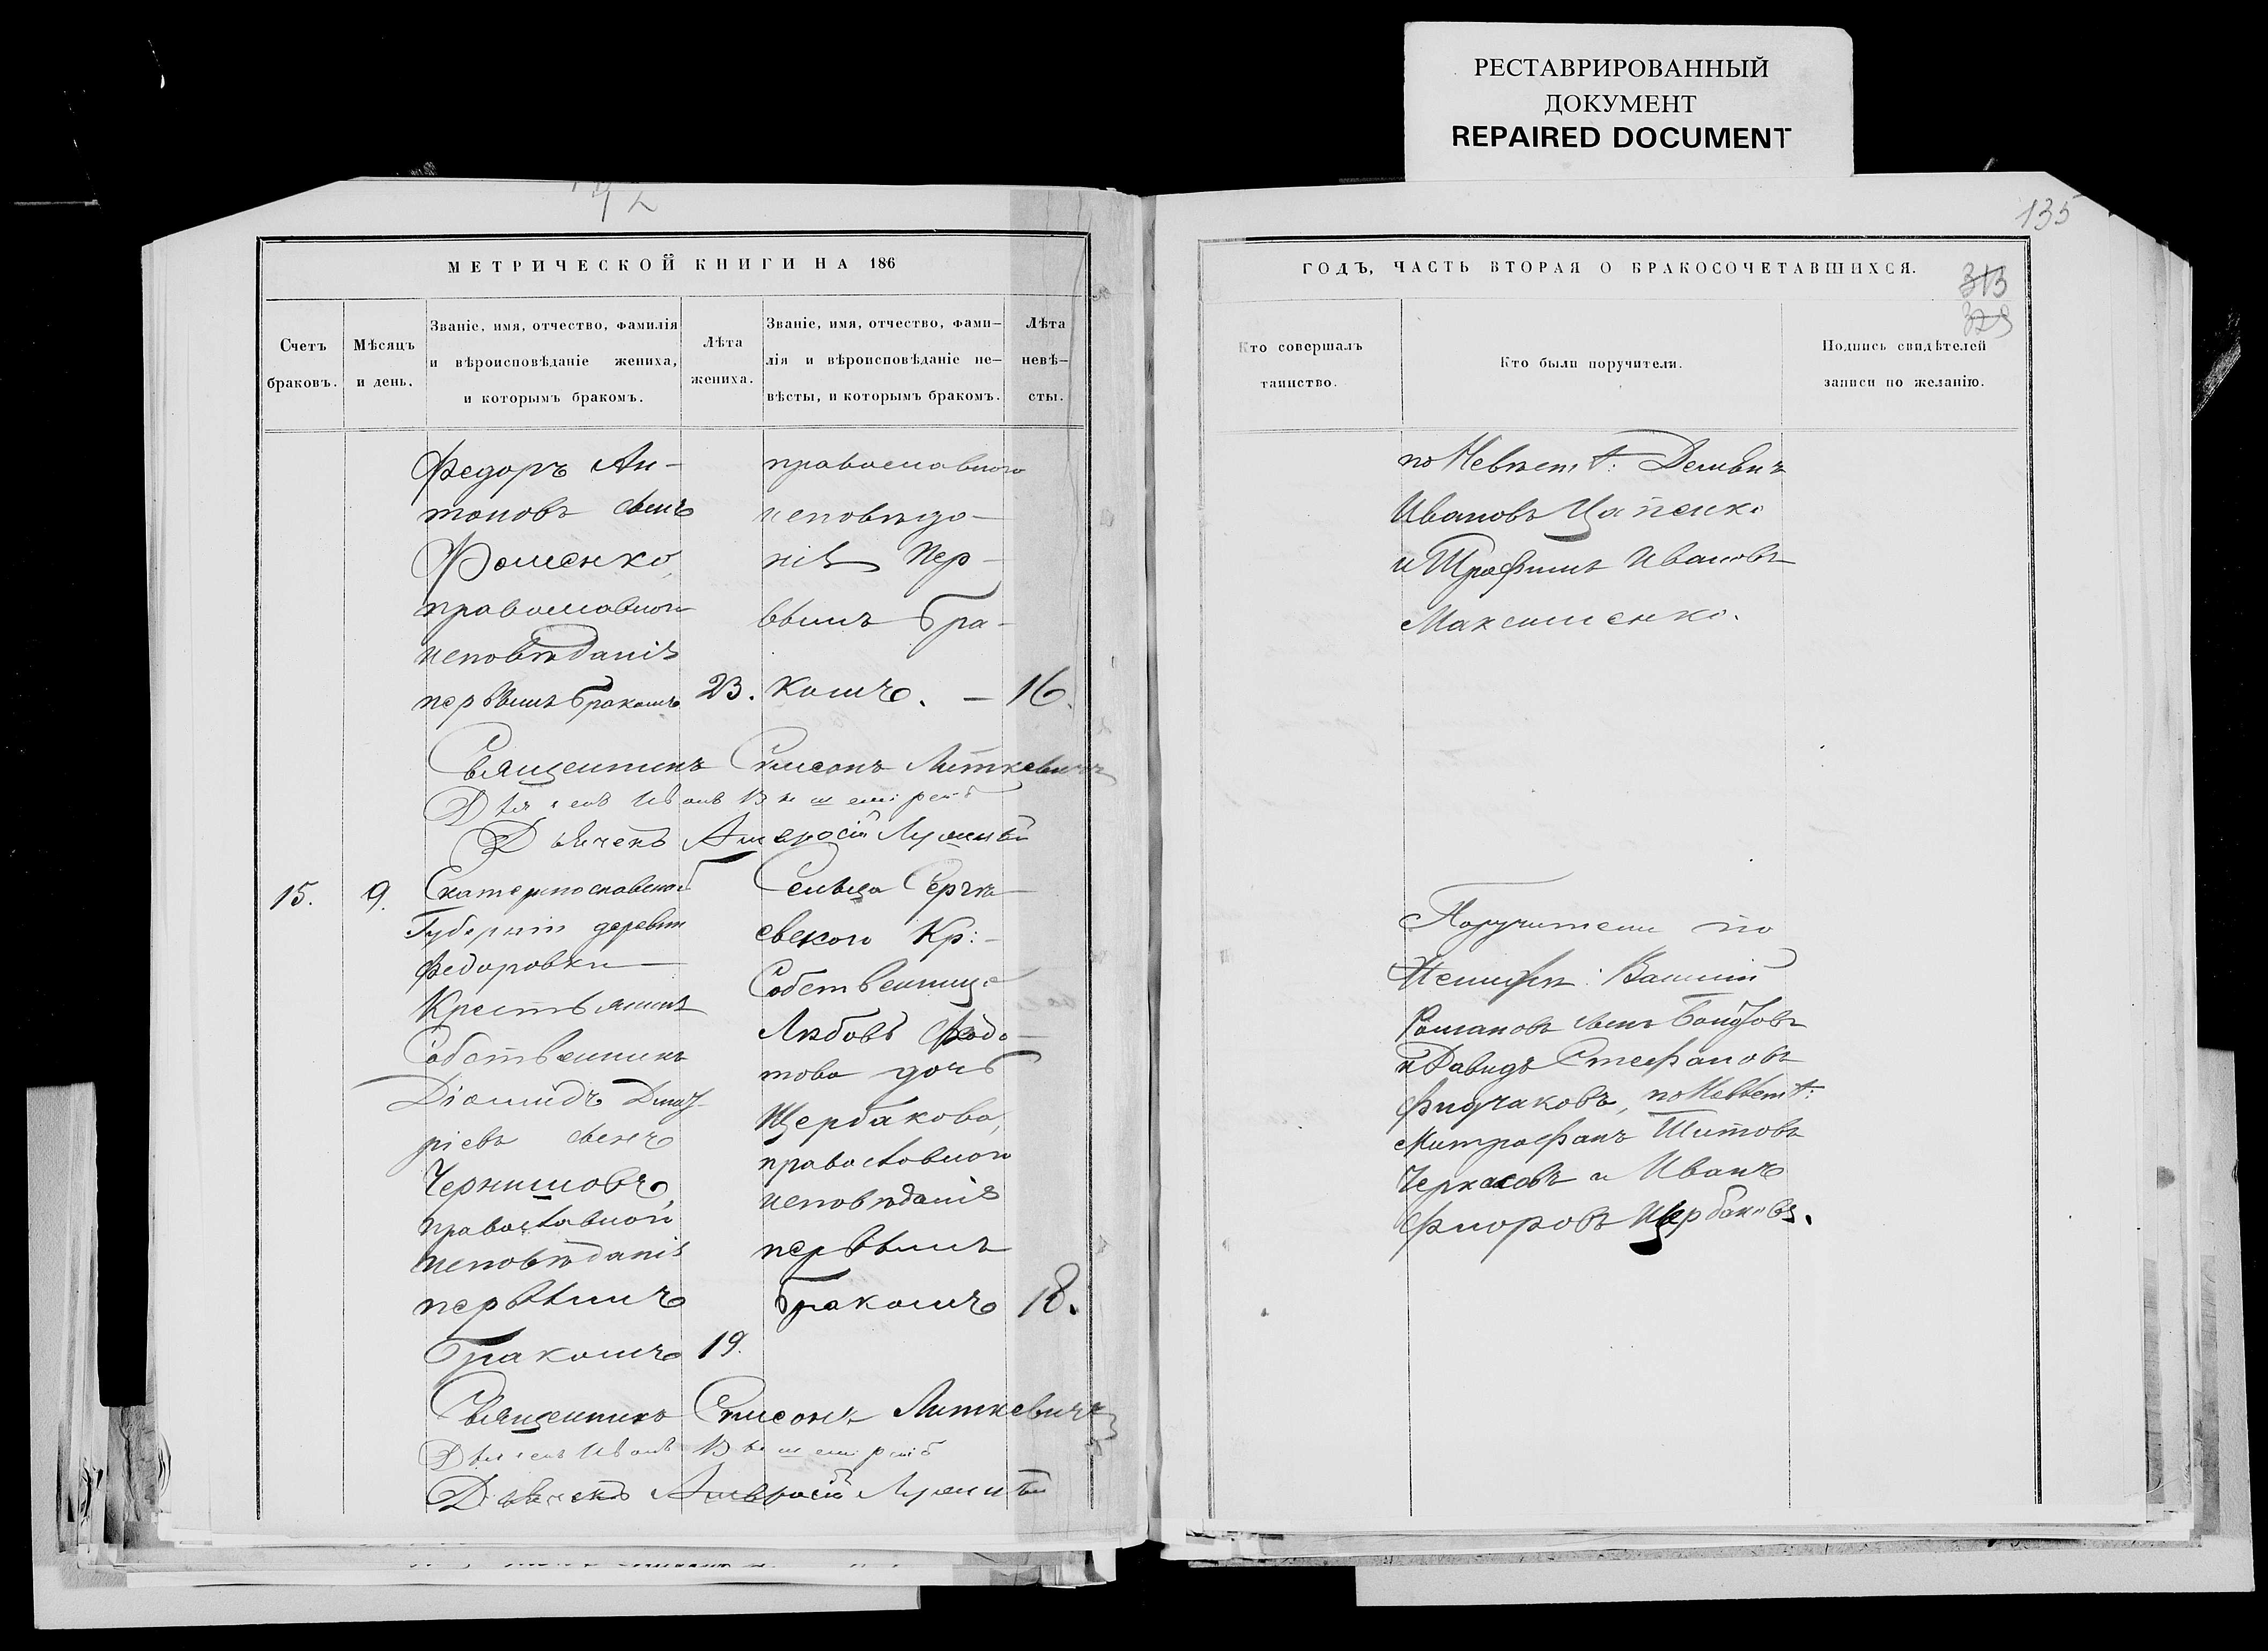 РЕСТАВРИРОВАННЫЙ
ДОКУМЕНТ
REPAIRED DOCUMENT
135
МЕТРИЧЕСКОЙ КНИГИ НА 186
Счетъ браковъ.
Мѣсяцъ и день.
Званіе, имя, отчество, фамилія
и вѣроисповѣданіе жениха,
и которымъ бракомъ.
Лѣта жениха.
Званіе, имя, отчество, фами–
лія и вѣроисповѣданіе не–
вѣсты, и которымъ бракомъ.
Лѣта невѣ– сты.
Федоръ Ан-
тоновъ сынъ
Фоменко,
православнаго
исповѣданія
первымъ бракомъ 23.
православного
исповѣда-
нія пер-
вымъ бра-
комъ. – 16.
Священникъ Симеонъ Литкевичъ
Иванъ
Дьячекъ Амвросій
15. 9.
Екатеринославской
Губерніи деревни
Федоровки
Крестьянинъ
Собственникъ
Діомидъ Дмит-
ріевъ сынъ
Чернышовъ,
православного
исповѣданія
первымъ
бракомъ 19.
Сельца
Кр:
Собственница
Любовь Федо-
това дочь
Щербакова,
православного
исповѣданія
первымъ
бракомъ 18.
Священникъ Симеонъ Литкевичъ
Иванъ
Дьячекъ Амвросій
ГОДЪ, ЧАСТЬ ВТОРАЯ О БРАКОСОЧЕТАВШИХСЯ.
313
329
Кто совершалъ
таинство.
Кто были поручители.
Подпись свидѣтелей
записи по желанію.
по Невѣстѣ:
Ивановъ Цапенко
и Трофимъ Ивановъ
Максименко.
Поручители по
Женихѣ: Василій
Романовъ сынъ
и Давидъ Стефановъ
по Невѣстѣ:
Митрофанъ Титовъ
Черкасовъ и Иванъ
Флоровъ Щербаковъ.